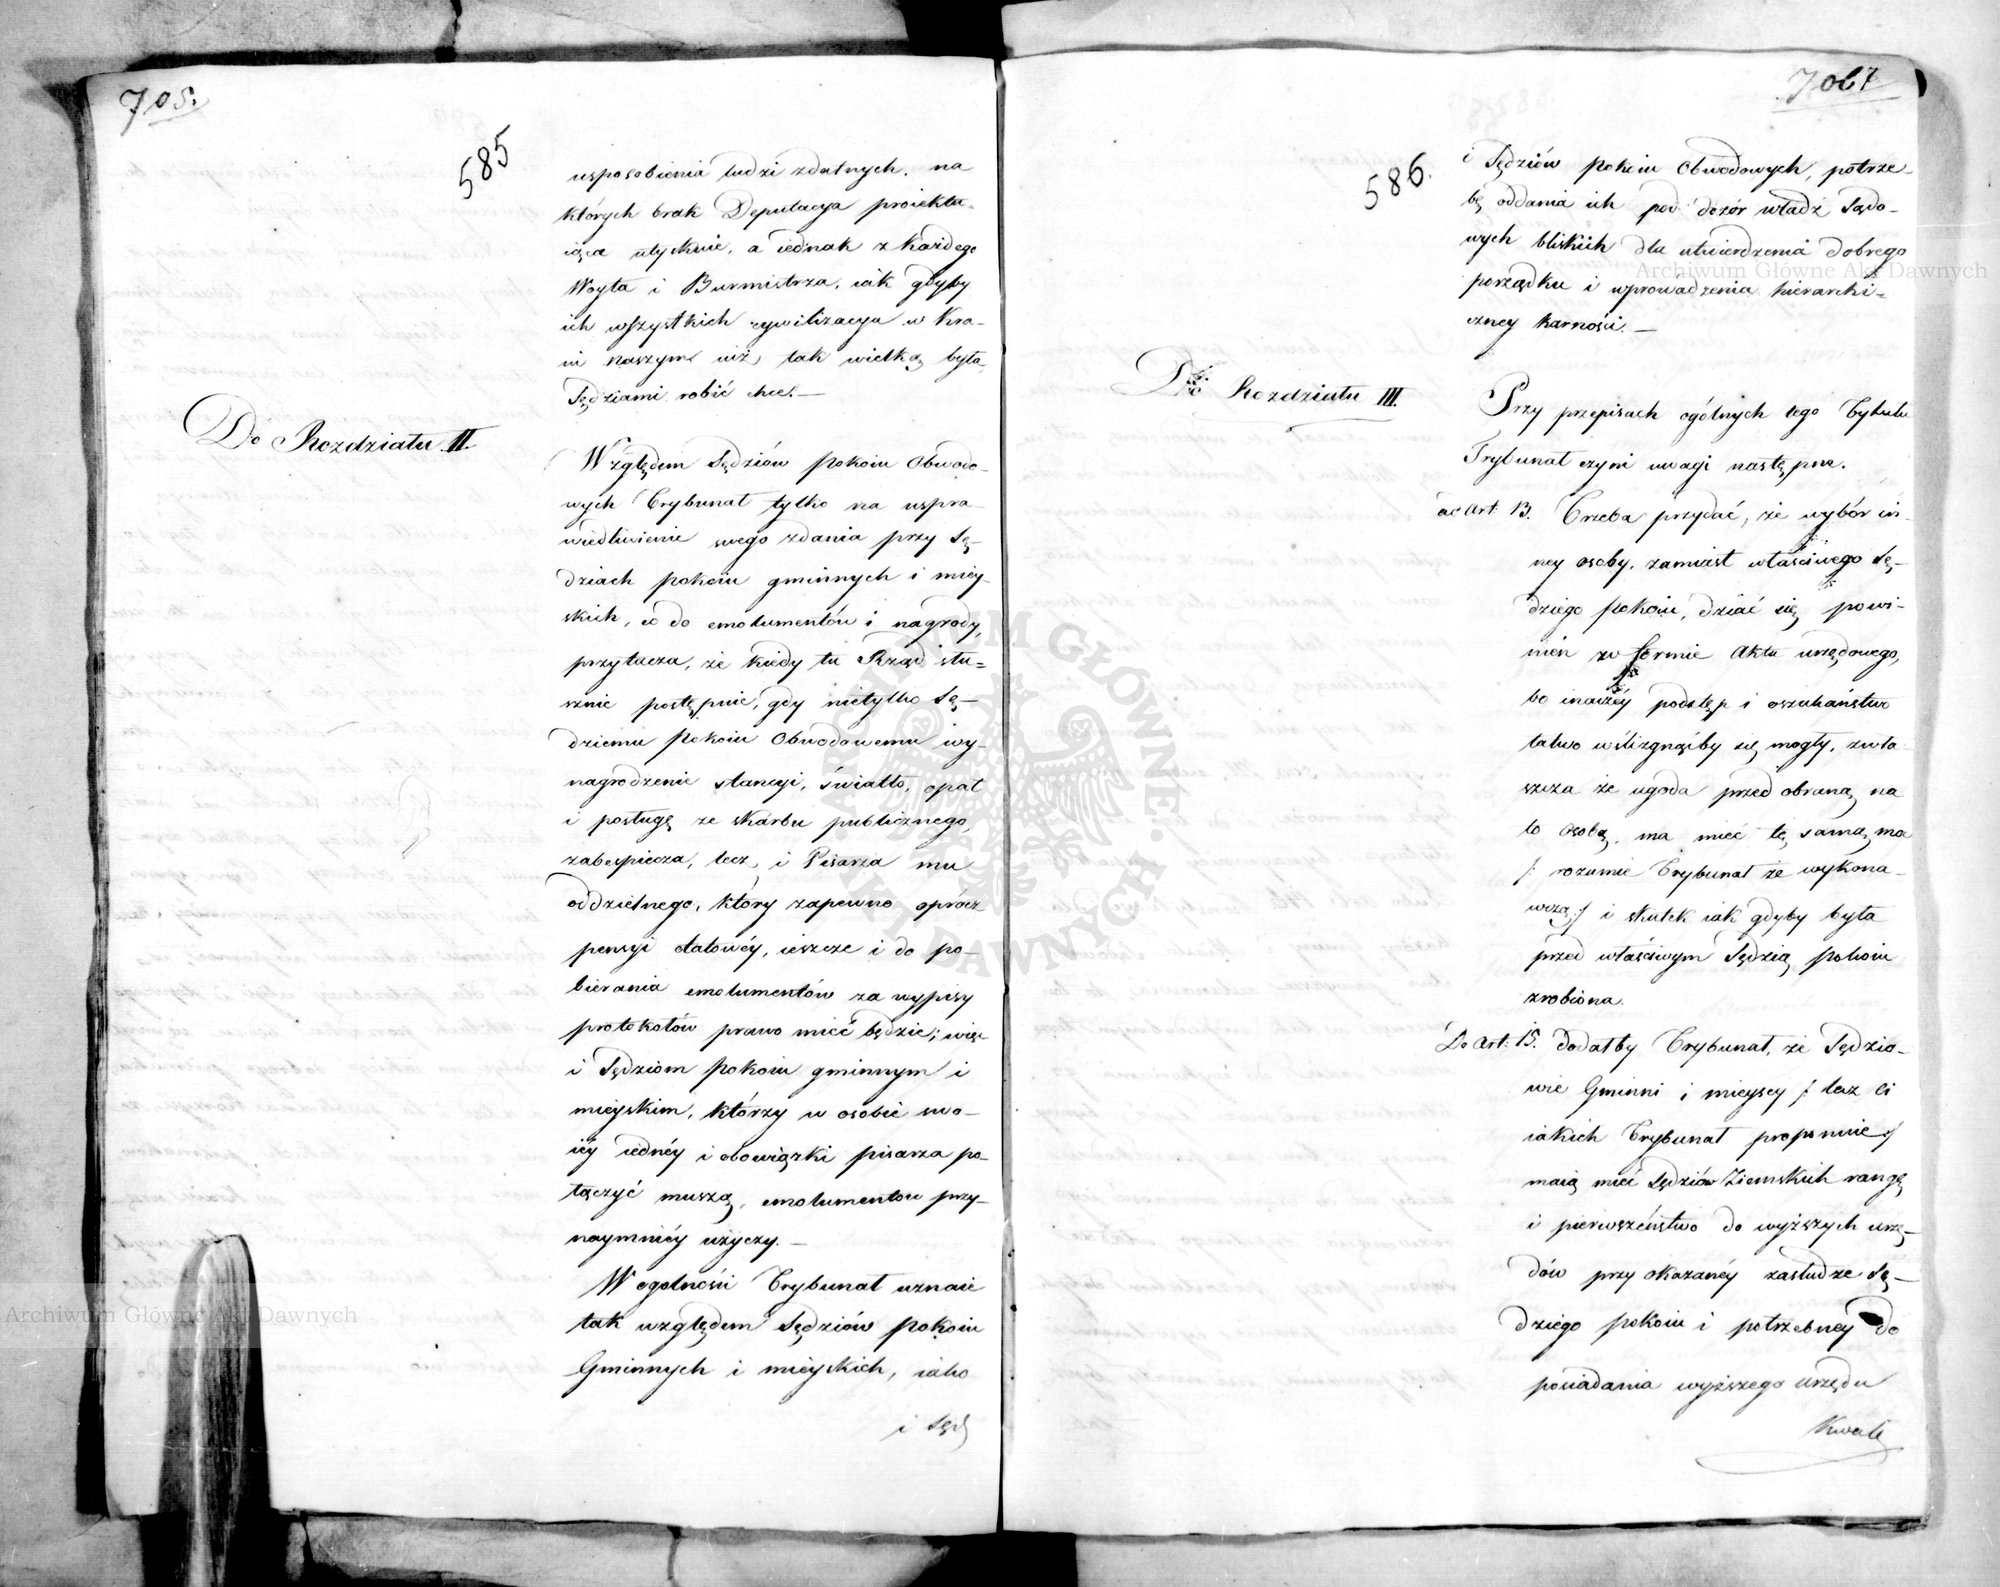 705.
585
usposobienia ludzi zdatnych, na
których brak Deputacya proiektu-
iąca utyskuie, a iednak z każdego
Woyta i Burmistrza, iak gdyby
ich wszystkich cywilizacya w Kra-
iu naszym iuż tak wielką była
Sędziami robić chce. —
Do Rozdziału II.
Względem Sędziów pokoiu Obwodo-
wych Trybunał tylko na uspra-
wiedliwienie swego zdania przy Sę-
dziach pokoiu gminnych i miey-
skich, co do emolumentów i nagrody,
przytacza, że kiedy tu Rząd słu-
sznie postępuie, gdy nietylko Sę-
dziemu Pokoiu Obwodowemu wy-
nagrodzenie stancyi, światło, opał
i posługę ze skarbu publicznego,
zabespiecza, lecz i Pisarza mu
oddzielnego, który zapewno oprócz
pensyi etatowéy, ieszcze i do po-
bierania emolumentów za wypisy
protokołów prawo mieć będzie; więc
i Sędziom Pokoiu gminnym i
mieyskim, którzy w osobie swo-
iéy iednéy i obowiązki pisarza po-
łączyć muszą, emolumentow przy-
naymniéy użyczy. —
W ogolności Trybunał uznaie
tak względem Sędziów Pokoiu
Gminnych i mieyskich, iako
i Sęd
7067
586.
i Sędziów Pokoiu Obwodowych, potrze-
bę oddania ich pod dozór władz Sądo-
wych bliskich dla utwierdzenia dobrego
porządku i wprowadzenia hierarchi-
czney karności. —
Do Rozdziału III.
Przy przepisach ogólnych tego Tytułu
Trybunał czyni uwagi następne.
ad Art. 13. Trzeba przydać, że wybór in-
ney osoby, zamiast właściwego Sę-
dziego Pokoiu, dziać się powi-
nien w formie Aktu urzędowego,
bo inaczéy podstęp i oszukaństwo
łatwo wśliznąćby się mogły, zwła-
szcza że ugoda przed obraną na
to osobą, ma mieć tę samą mo
/: rozumie Trybunał że wykona-
wczą :/ i skutek iak gdyby była
przed właściwym Sędzią pokoiu
zrobiona.
Do Art. 15. Dodałby Trybunał, że Sędzio-
wie Gminni i mieyscy /: lecz ci
iakich Trybunał proponuie :/
maią mieć Sędziów Ziemskich rangę
i pierwszeństwo do wyższych urzę-
dów przy okazanéy zasłudze Sę-
dziego pokoiu i potrzebney do
posiadania wyższego urzędu
Kwali
Archiwum Główne Akt Dawnych
Archiwum Główne Akt Dawnych
ARCHIWUM GŁÓWNE AKT DAWNYCH